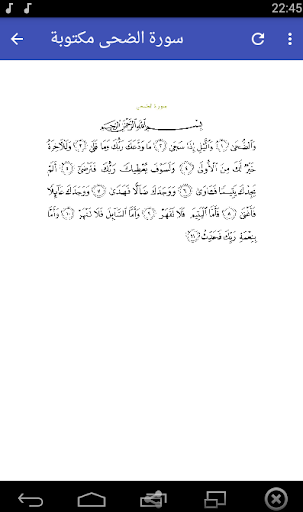 22:45
سورة الضحى مكتوبة
سورة الضحى
بِسْمِ ٱللَّهِ ٱلرَّحْمَٰنِ ٱلرَّحِيمِ
وَٱلضُّحَىٰ ۝١ وَٱلَّيْلِ إِذَا سَجَىٰ ۝٢ مَا وَدَّعَكَ رَبُّكَ وَمَا قَلَىٰ ۝٣ وَلَلْءَاخِرَةُ
خَيْرٌ لَّكَ مِنَ ٱلْأُولَىٰ ۝٤ وَلَسَوْفَ يُعْطِيكَ رَبُّكَ فَتَرْضَىٰٓ ۝٥ أَلَمْ
يَجِدْكَ يَتِيمًا فَـَٔاوَىٰ ۝٦ وَوَجَدَكَ ضَآلًّا فَهَدَىٰ ۝٧ وَوَجَدَكَ عَآئِلًا
فَأَغْنَىٰ ۝٨ فَأَمَّا ٱلْيَتِيمَ فَلَا تَقْهَرْ ۝٩ وَأَمَّا ٱلسَّآئِلَ فَلَا تَنْهَرْ ۝١٠ وَأَمَّا
بِنِعْمَةِ رَبِّكَ فَحَدِّثْ ۝١١